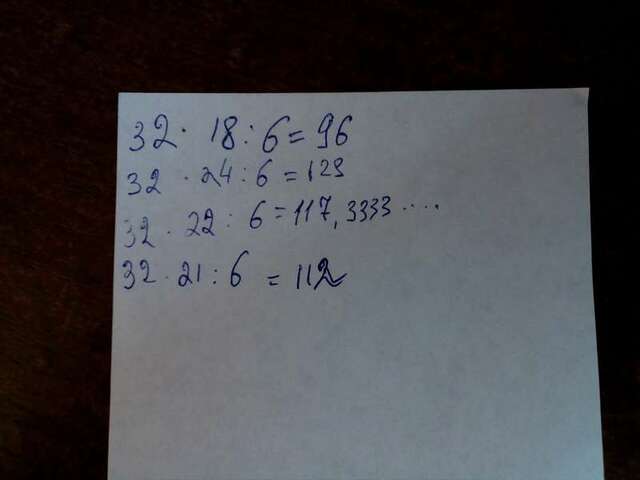 32 · 18 : 6 = 96
32 · 24 : 6 = 128
32 · 22 : 6 = 117,3333 ....
32 · 21 : 6 = 112